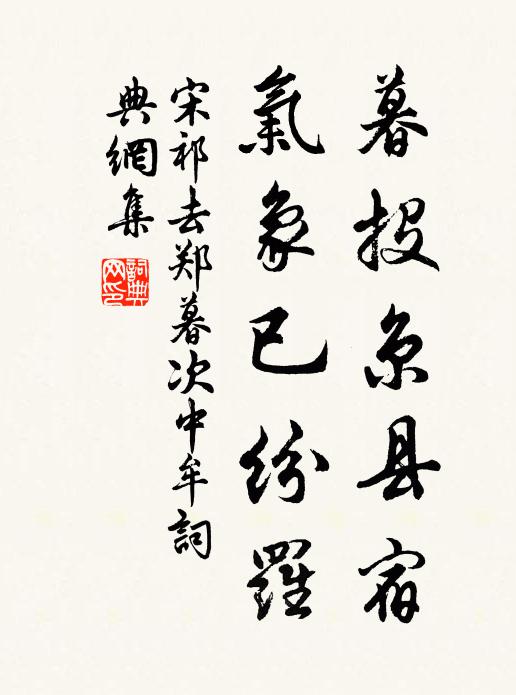 暮投京县宿
氣象已纷羅
宋祁去郑暮次中牟詞
典網集
詞典网印